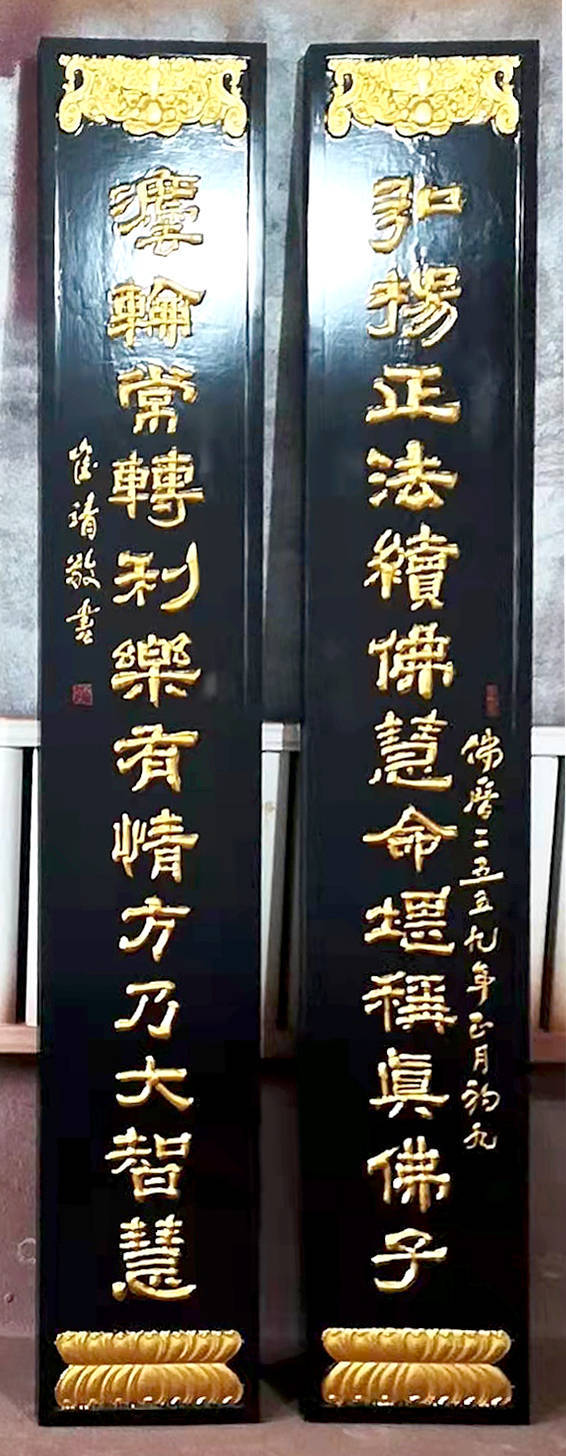 弘揚正法續佛慧命堪稱眞佛子
佛曆二五五九年正月初九
灋輪常轉利樂有情方乃大智慧
崔靖敬書